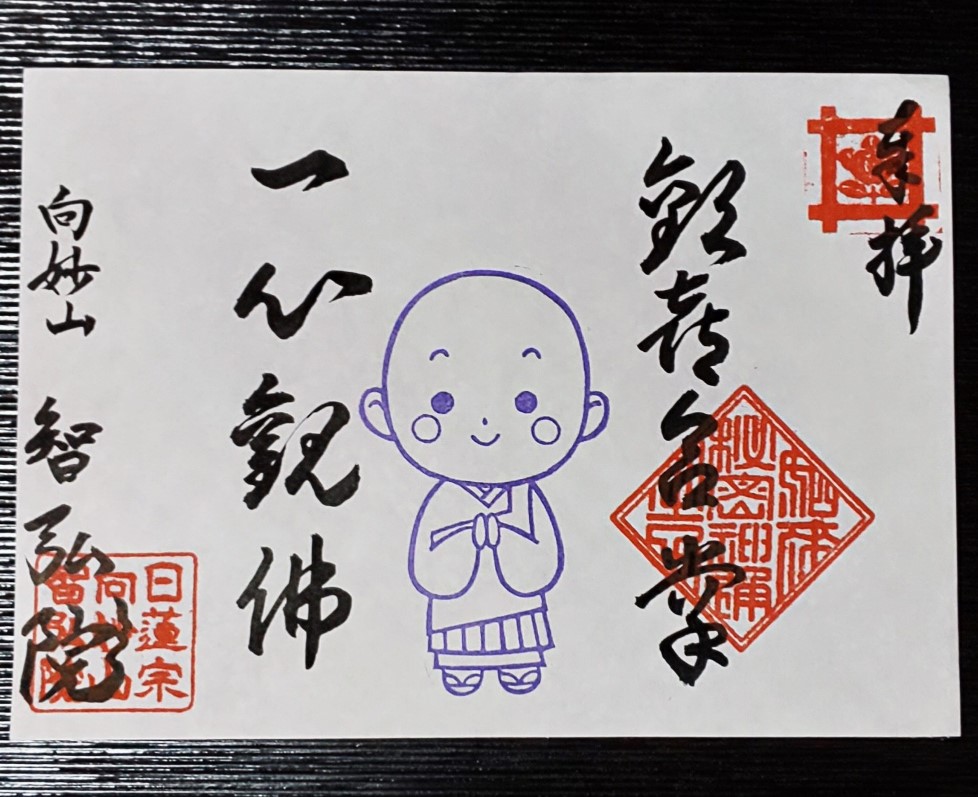 奉拝
歓喜合掌
一心觀佛
向妙山 智弘院
日蓮宗
向妙山
智弘院